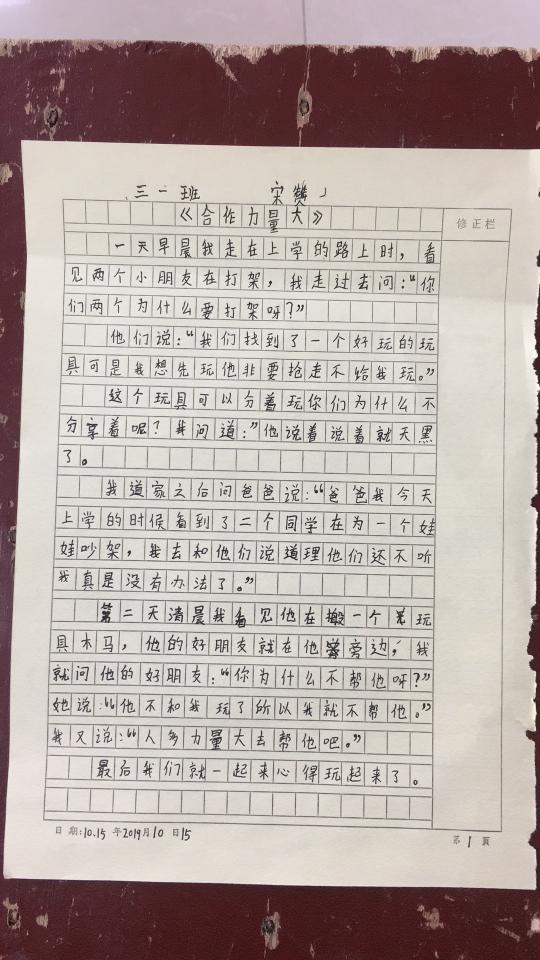 三一班 宋赞
《合作力量大》
修正栏
一天早晨我走在上学的路上时，看
见两个小朋友在打架，我走过去问：“你
们两个为什么要打架呀？”
他们说：“我们找到了一个好玩的玩
具可是我想先玩他非要抢走不给我玩。”
这个玩具可以分着玩你们为什么不
分享着呢？我问道：”他说着说着就天黑
了。
我道家之后问爸爸说：“爸爸我今天
上学的时候看到了二个同学在为一个娃
娃吵架，我去和他们说道理他们还不听
我真是没有办法了。”
第二天清晨我看见他在搬一个玩
具木马，他的好朋友就在他旁边，我
就问他的好朋友：“你为什么不帮他呀？”
她说：“他不和我玩了所以我就不帮他。”
我又说：“人多力量大去帮他吧。”
最后我们就一起来心得玩起来了。
日期：10.15 年2019月10日15
第1頁